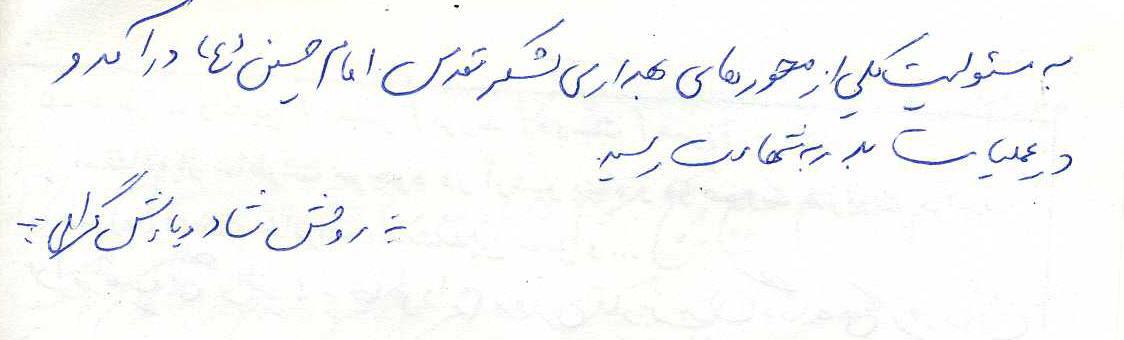 به مسئولیت یکی از محورهای بهداری لشکر مقدس امام حسین (ع) درآمد و
در عملیات بدر به شهادت رسید.
روحش شاد و یادش گرامی